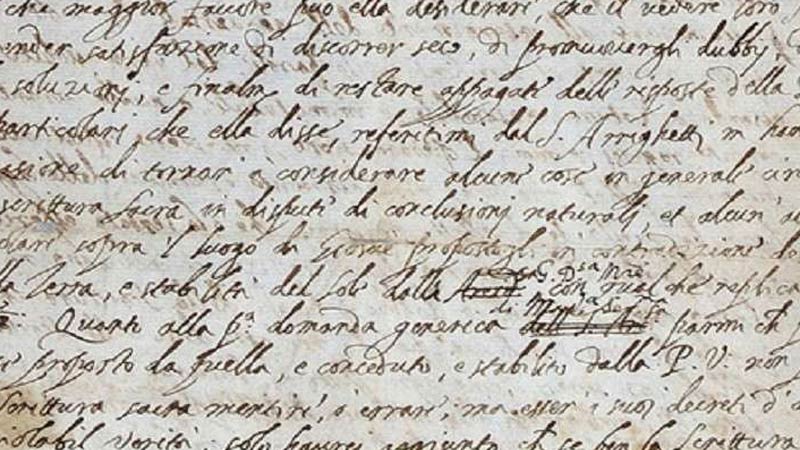 che maggior favore può ella desiderare, che il vedere loro
ender satisfazione di discorrer seco, di promuovergli dubbij,
soluzioni, e finalm.e di restare appagati delle risposte della
particolari che ella disse, referitimi dal S. Arrighetti m'han
asione di tornar à considerare alcune cose in generale circ
scrittura Sacra in dispute di conclusioni naturali, et alcun'al
sopra 'l luogo di Giosuè propostogli in contradizione
la Terra, e stabilità del Sole dalla G. D.sa M.re con qualche replica
Quanto alla p.a domanda generica di M.ma Ser.ma parmi ch
proposto da quella, e conceduto, e stabilito dalla P. V. non
scrittura sacra mentire, o errare, ma esser i suoi decreti d'a
iolabil verità, solo haurei aggiunto ch se ben la Scrittura